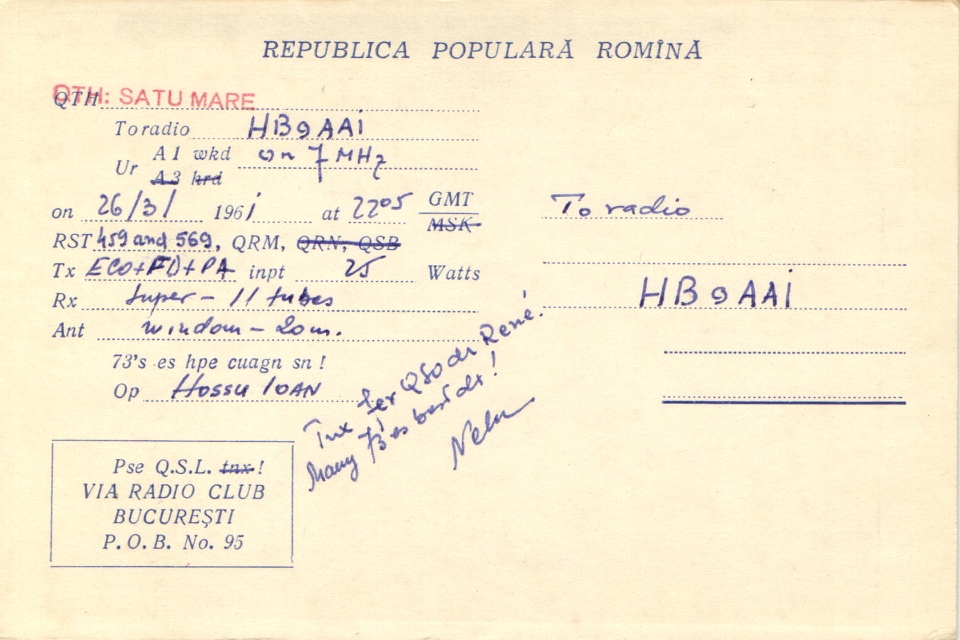 REPUBLICA POPULARĂ ROMÎNĂ
QTH: SATU MARE
QTH
To radio HB9AAI
Ur A1 wkd on 7 MHz
A3 hrd
on 26/3/ 1961 at 2205 GMT
MSK
RST 459 and 569, QRM, QRN, QSB
Tx ECO+FD+PA inpt 25 Watts
Rx super - 11 tubes
Ant windom - 20m.
73's es hpe cuagn sn!
Op HOSSU IOAN
Tnx fer QSO dr René!
Many 73 es best dx!
Nelu
Pse Q.S.L. tnx!
VIA RADIO CLUB
BUCUREȘTI
P.O.B. No. 95
To radio
HB9AAI